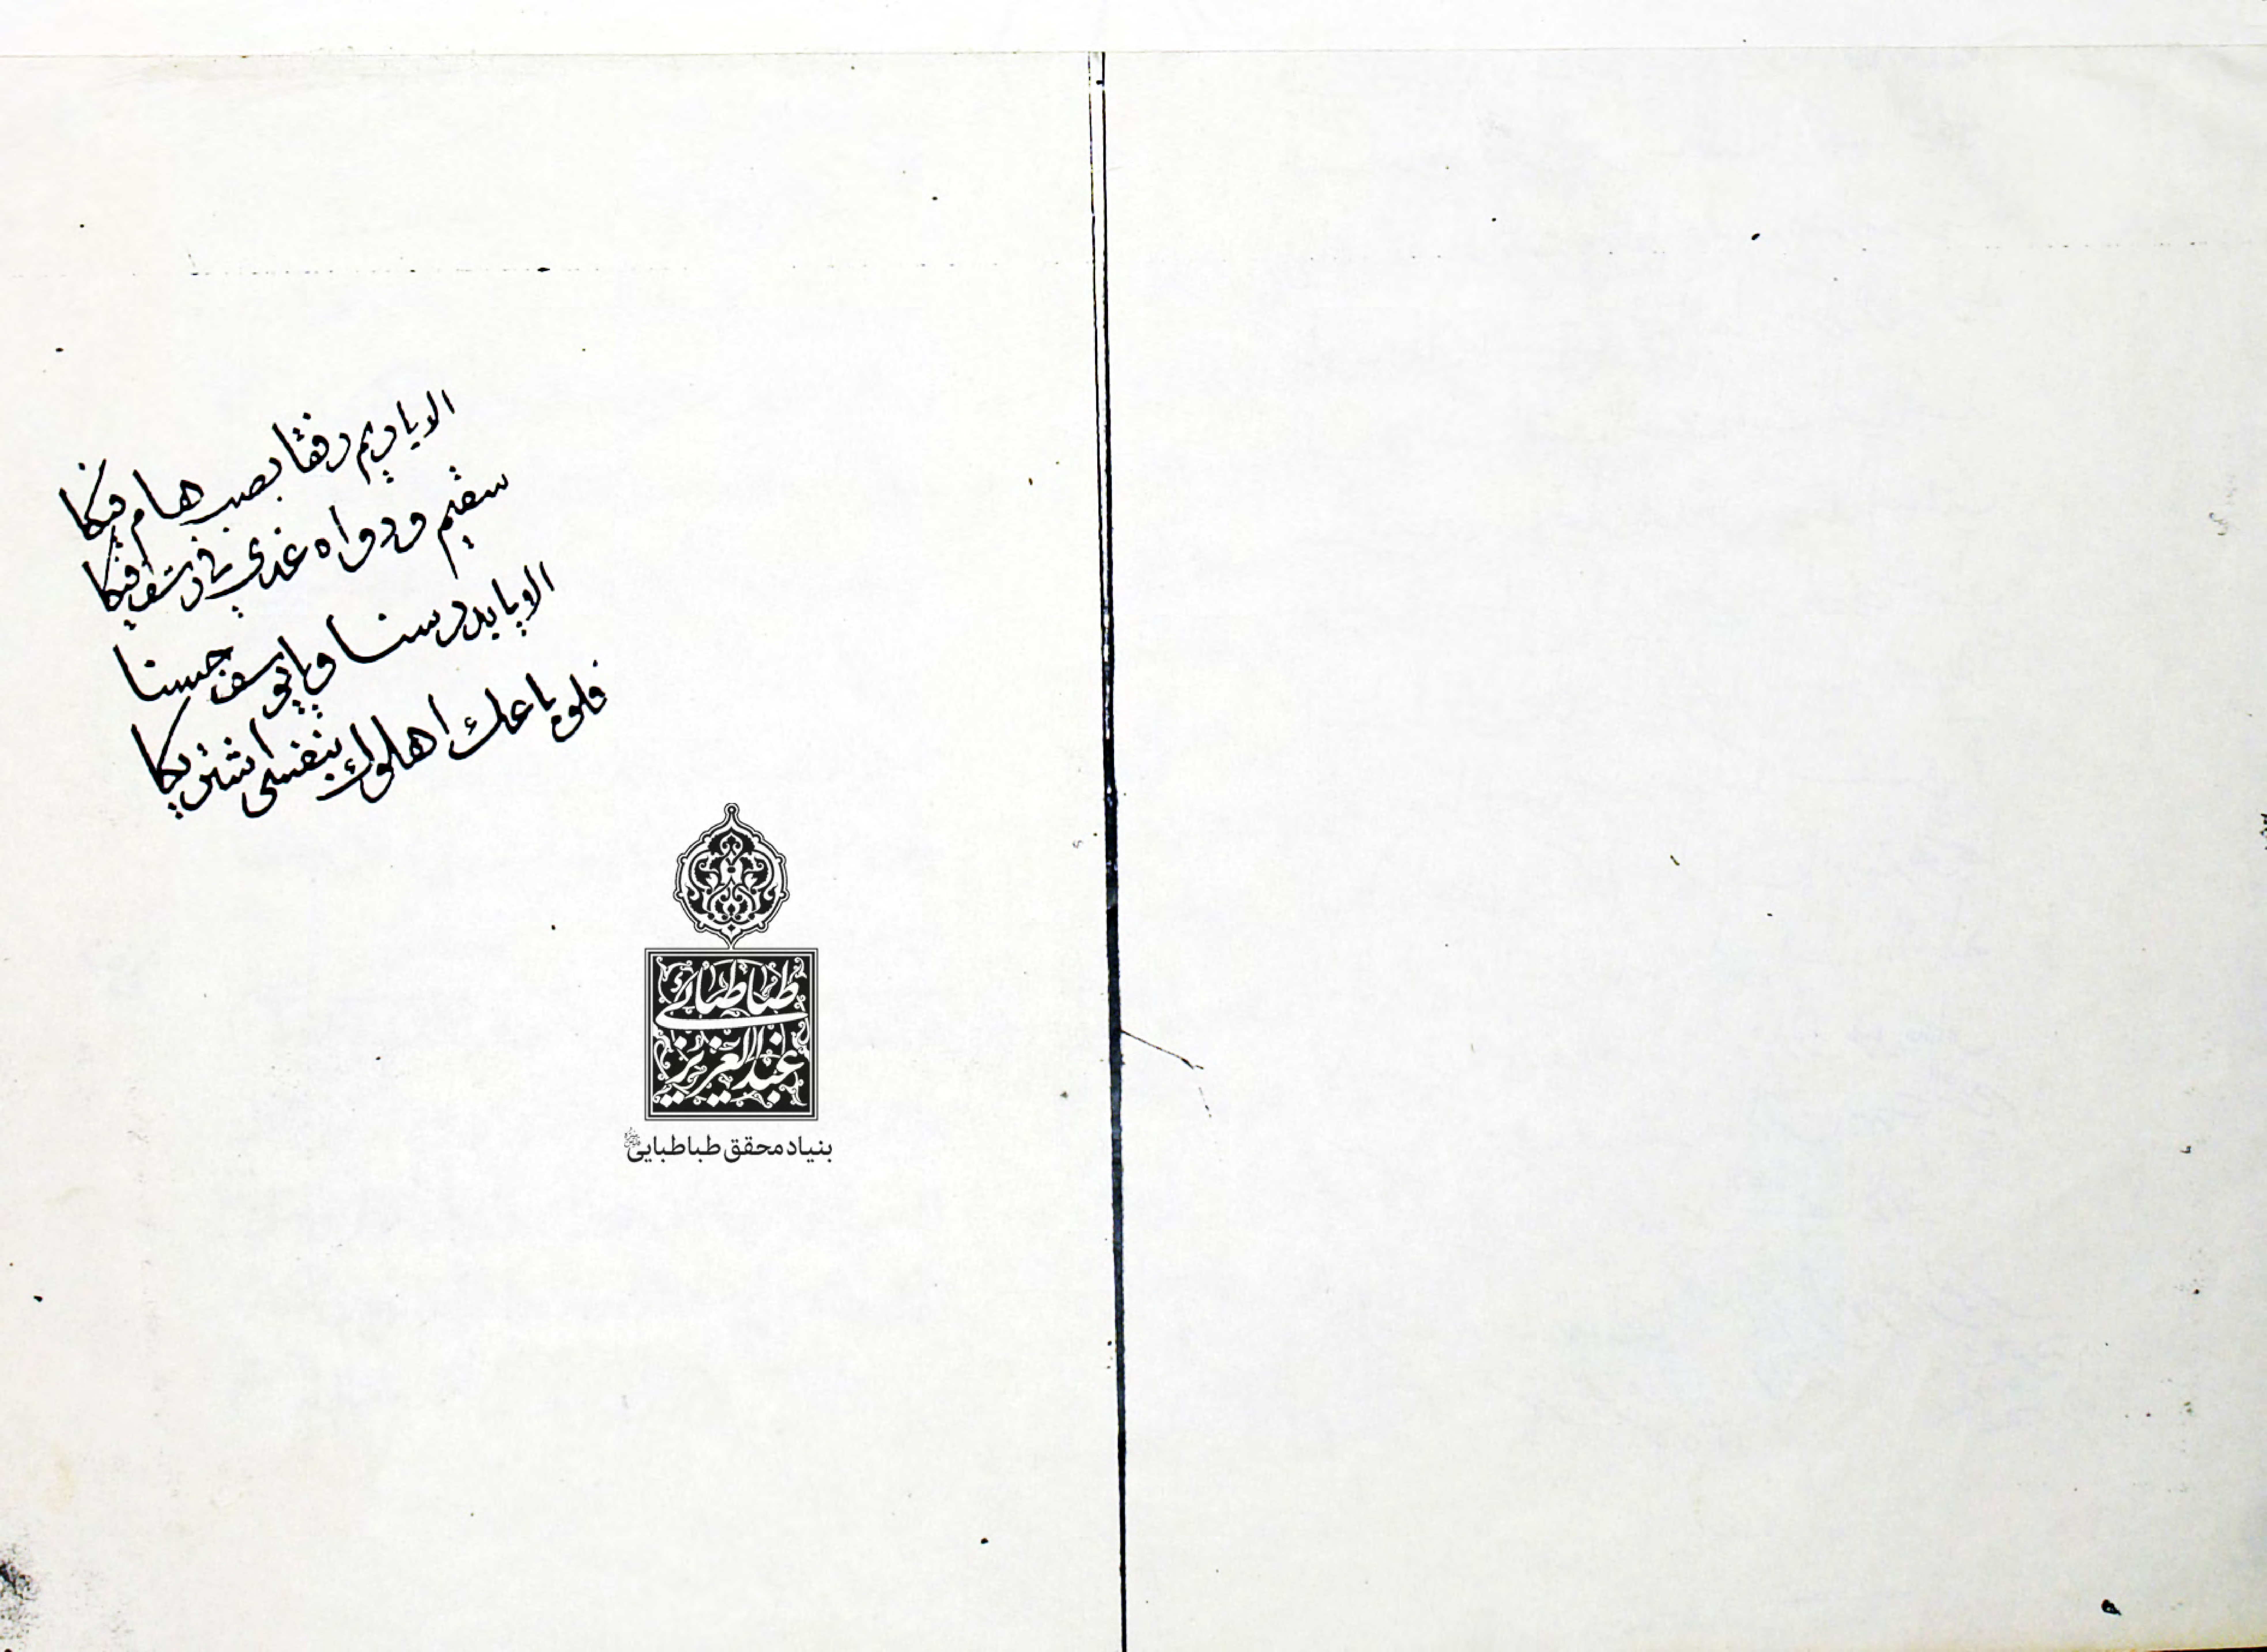 الا ياريم رفقا بصب هام فيكا
سقيم ودواه غدي في رشف فيكا
الا يا بدر سنا ويا يوسف حسنا
فلو باعك اهلوك بنفسي اشتريكا
طباطبائی
عبدالعزیز
بنیاد محقق طباطبایی